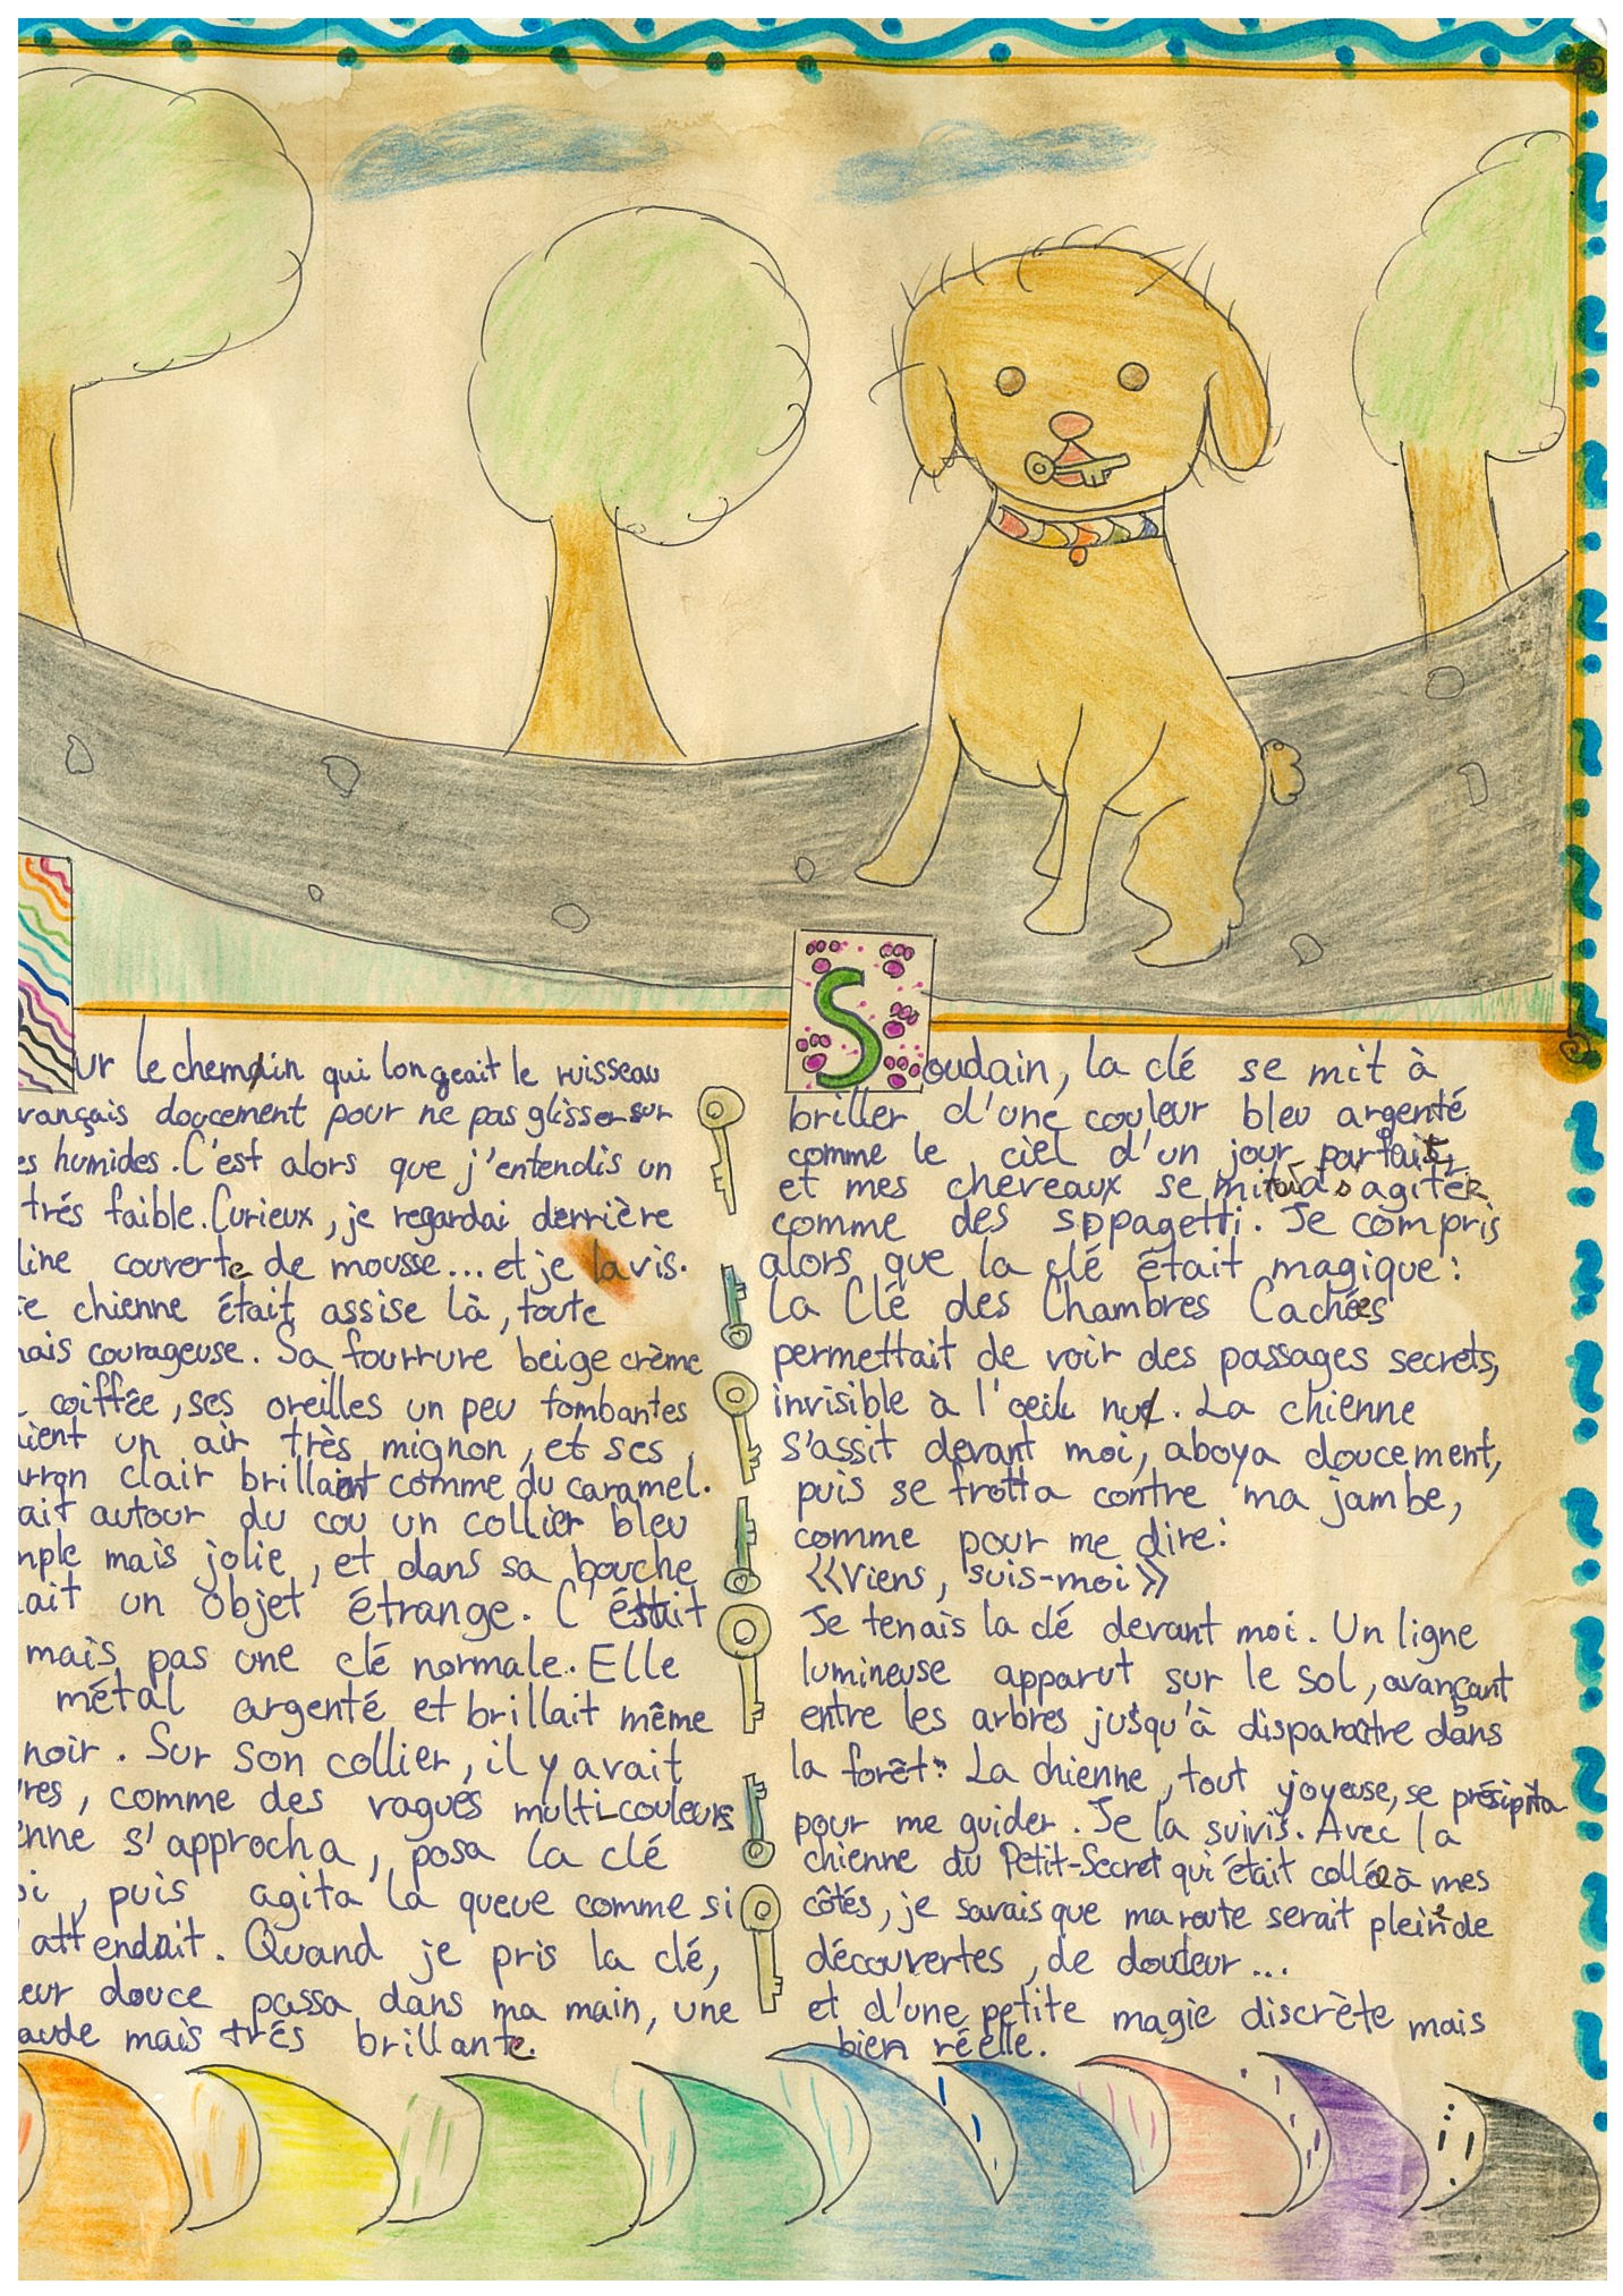 ur le chemin qui longeait le ruisseau
vançais doucement pour ne pas glisser sur
es humides. C'est alors que j'entendis un
trés faible. Curieux, je regardai derrière
line couverte de mousse... et je la vis.
te chienne était assise là, toute
nais courageuse. Sa fourrure beige crème
coiffée, ses oreilles un peu tombantes
aient un air très mignon, et ses
arron clair brillaient comme du caramel.
ait autour du cou un collier bleu
mple mais jolie, et dans sa bouche
ait un objet étrange. C'était
mais pas une clé normale. Elle
métal argenté et brillait même
noir. Sur son collier, il y avait
res, comme des vagues multi-couleurs
enne s'approcha, posa la clé
oi, puis agita la queue comme si
attendait. Quand je pris la clé,
eur douce passa dans ma main, une
aude mais trés brillante.
Soudain, la clé se mit à
briller d'une couleur bleu argenté
comme le ciel d'un jour parfait,
et mes cheveaux se mit à s'agiter
comme des sppagetti. Je compris
alors que la clé était magique:
La Clé des Chambres Cachées
permettait de voir des passages secrets,
invisible à l'oeil nu. La chienne
s'assit devant moi, aboya doucement,
puis se frotta contre ma jambe,
comme pour me dire:
«Viens, suis-moi»
Je tenais la clé devant moi. Un ligne
lumineuse apparut sur le sol, avançant
entre les arbres jusqu'à disparaître dans
la forêt. La chienne, tout joyeuse, se présipita
pour me guider. Je la suivis. Avec la
chienne du Petit-Secret qui était collée à mes
côtés, je savais que ma route serait pleine de
découvertes, de douleur...
et d'une petite magie discrète mais
bien réelle.